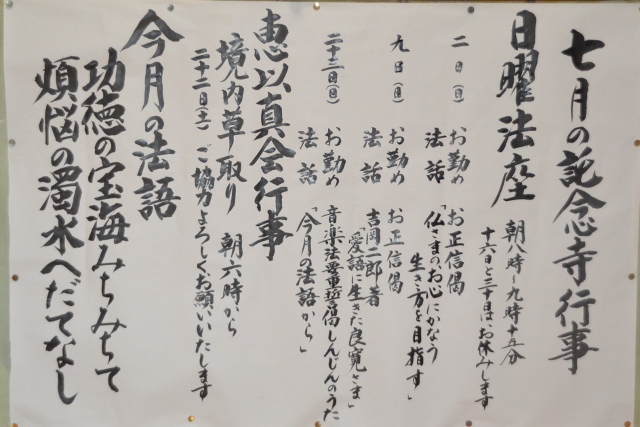 七月の記念寺行事
日曜法座
朝八時～九時十五分
十六日と三十日は、お休みします
二日(日) お勤め お正信偈
法話 「仏さまのお心にかなう
生き方を目指す」
九日(日) お勤め お正信偈
法話 吉岡二郎著
「愛語に生きた良寛さま」
二十三日(日) お勤め 音楽法要重誓偈しんじんのうた
法話 「今月の法語から」
恵以真会行事
境内草取り 朝六時から
二十二日(土) ご協力よろしくお願いいたします
今月の法語
功徳の宝海みちみちて
煩悩の濁水へだてなし